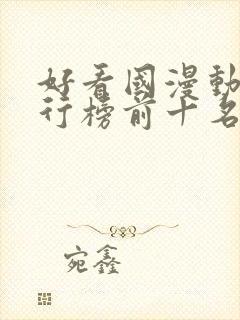 好看國漫動
行榜前十名
宛鑫